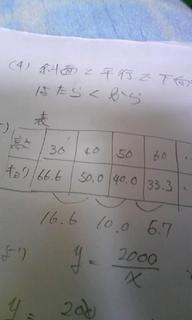 (4) 斜面と平行で下向
はたらく力
表
30 40 50 60
66.6 50.0 40.0 33.3
16.6 10.0 6.7
より y = 2000/x
y = 200